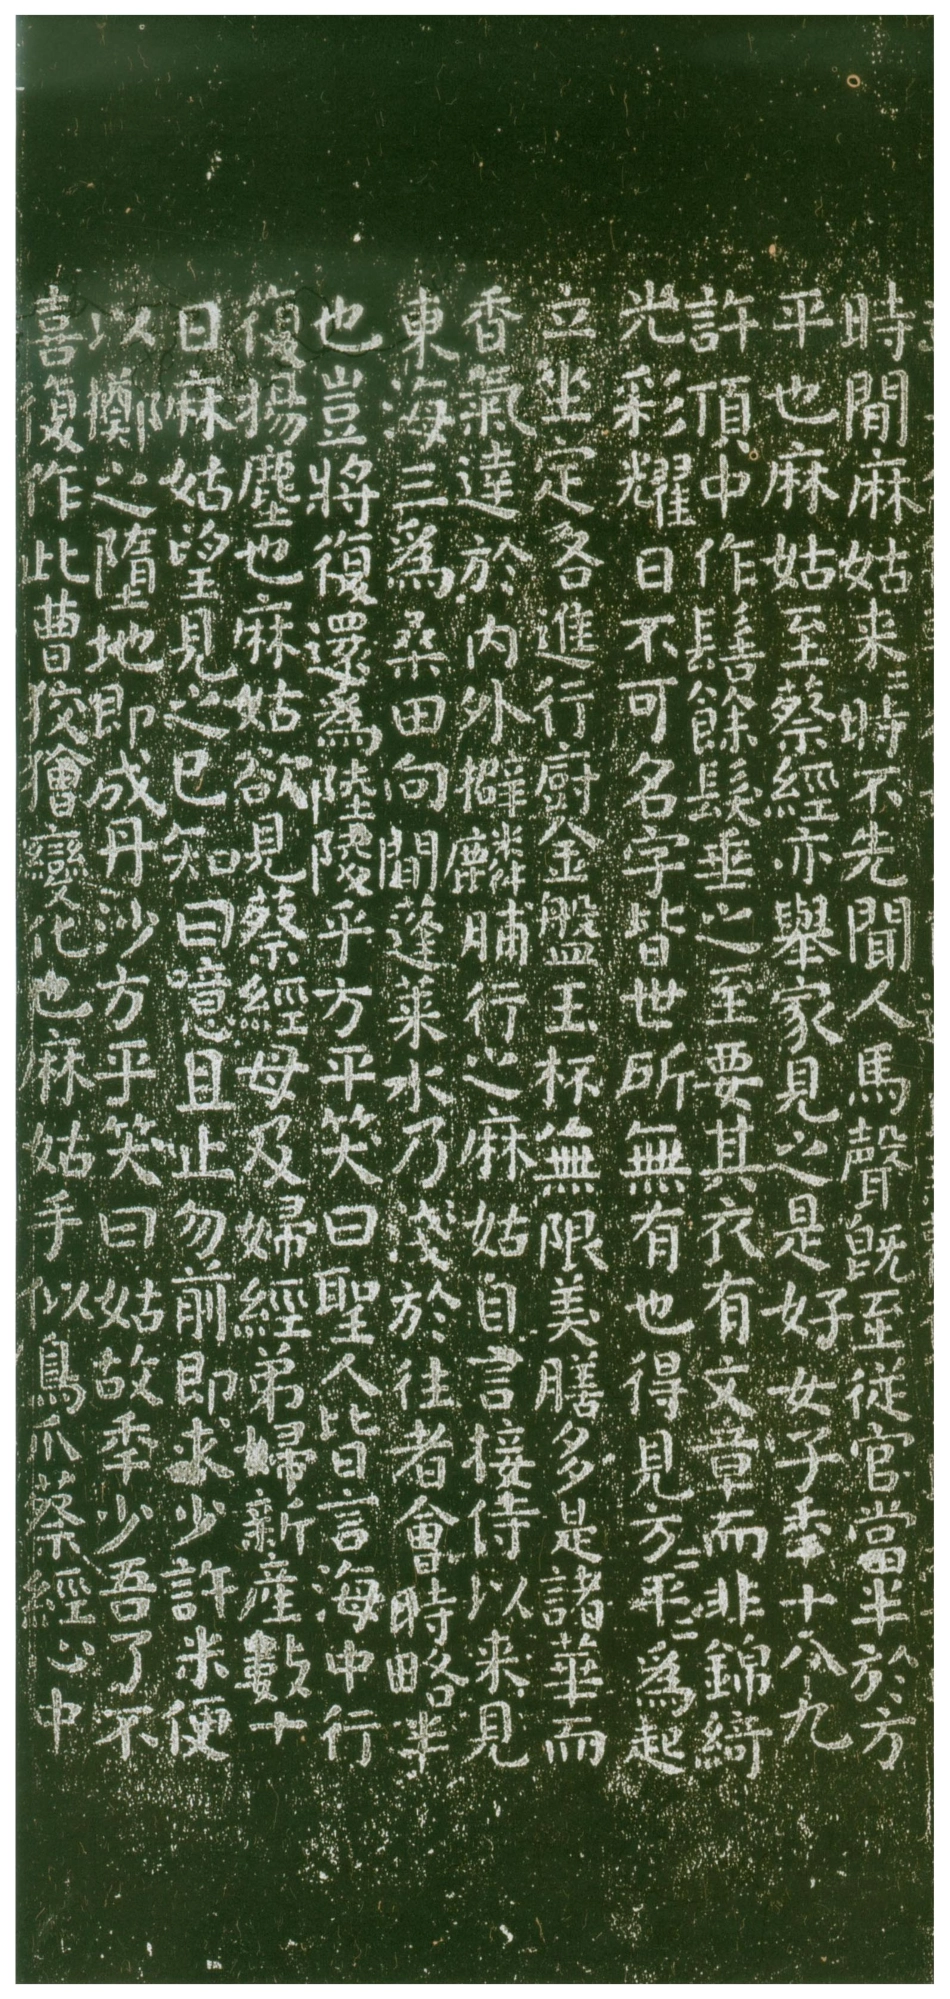 時間麻姑来時不先聞人馬聲既至從官當半於方
平也麻姑至蔡經亦舉家見之是好女子年十八九
許頂中作髻餘髮垂之至要其衣有文章而非錦綺
光彩耀日不可名字皆世所無有也得見方平為起
立坐定各進行廚金盤玉杯無限美膳多是諸華而
香氣達於內外擗麟脯行之麻姑自言接侍以来見
東海三為桑田向間蓬萊水乃淺於往者會時略半
也豈將復還為陸陵乎方平笑曰聖人皆言海中行
復揚塵也麻姑欲見蔡經母及婦經弟婦新產數十
日麻姑望見之已知曰噫且止勿前即求少許米便
以擲之墮地即成丹沙方平笑曰姑故年少吾了不
喜復作此曹狡獪變化也麻姑手似鳥爪蔡經心中